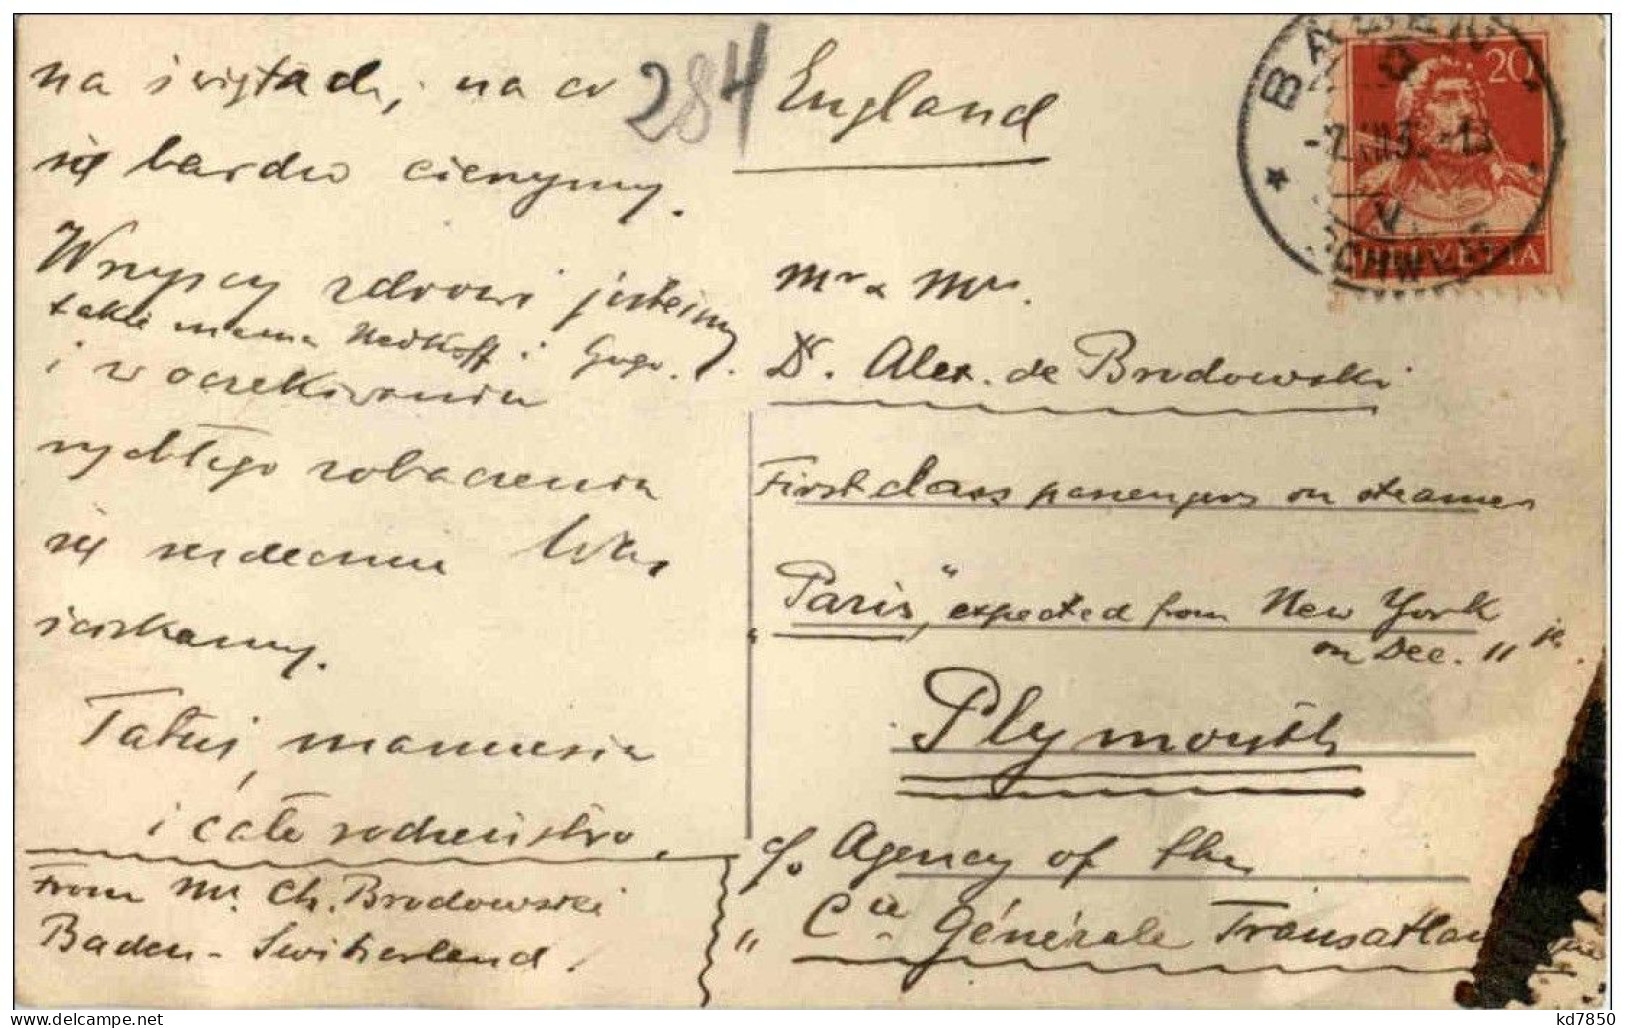 na świętach, na co
się bardzo cieszymy.
Wszyscy zdrowi jesteśmy
także mama Nedkoff i Gogo.
i w oczekiwaniu
rychłego zobaczenia
się serdecznie Was
ściskamy.
Tatuś, mamusia
i całe rodzeństwo.
From Mr. Ch. Brodowski
Baden - Switzerland.
284
England
Mr & Mrs.
Dr. Alex. de Brodowski
First class passengers on steamer
"Paris," expected from New York
on Dec. 11
Plymouth
c/o Agency of the
" Cie Générale
BADEN
SCHWEIZ
V
20
HELVETIA
kd7850